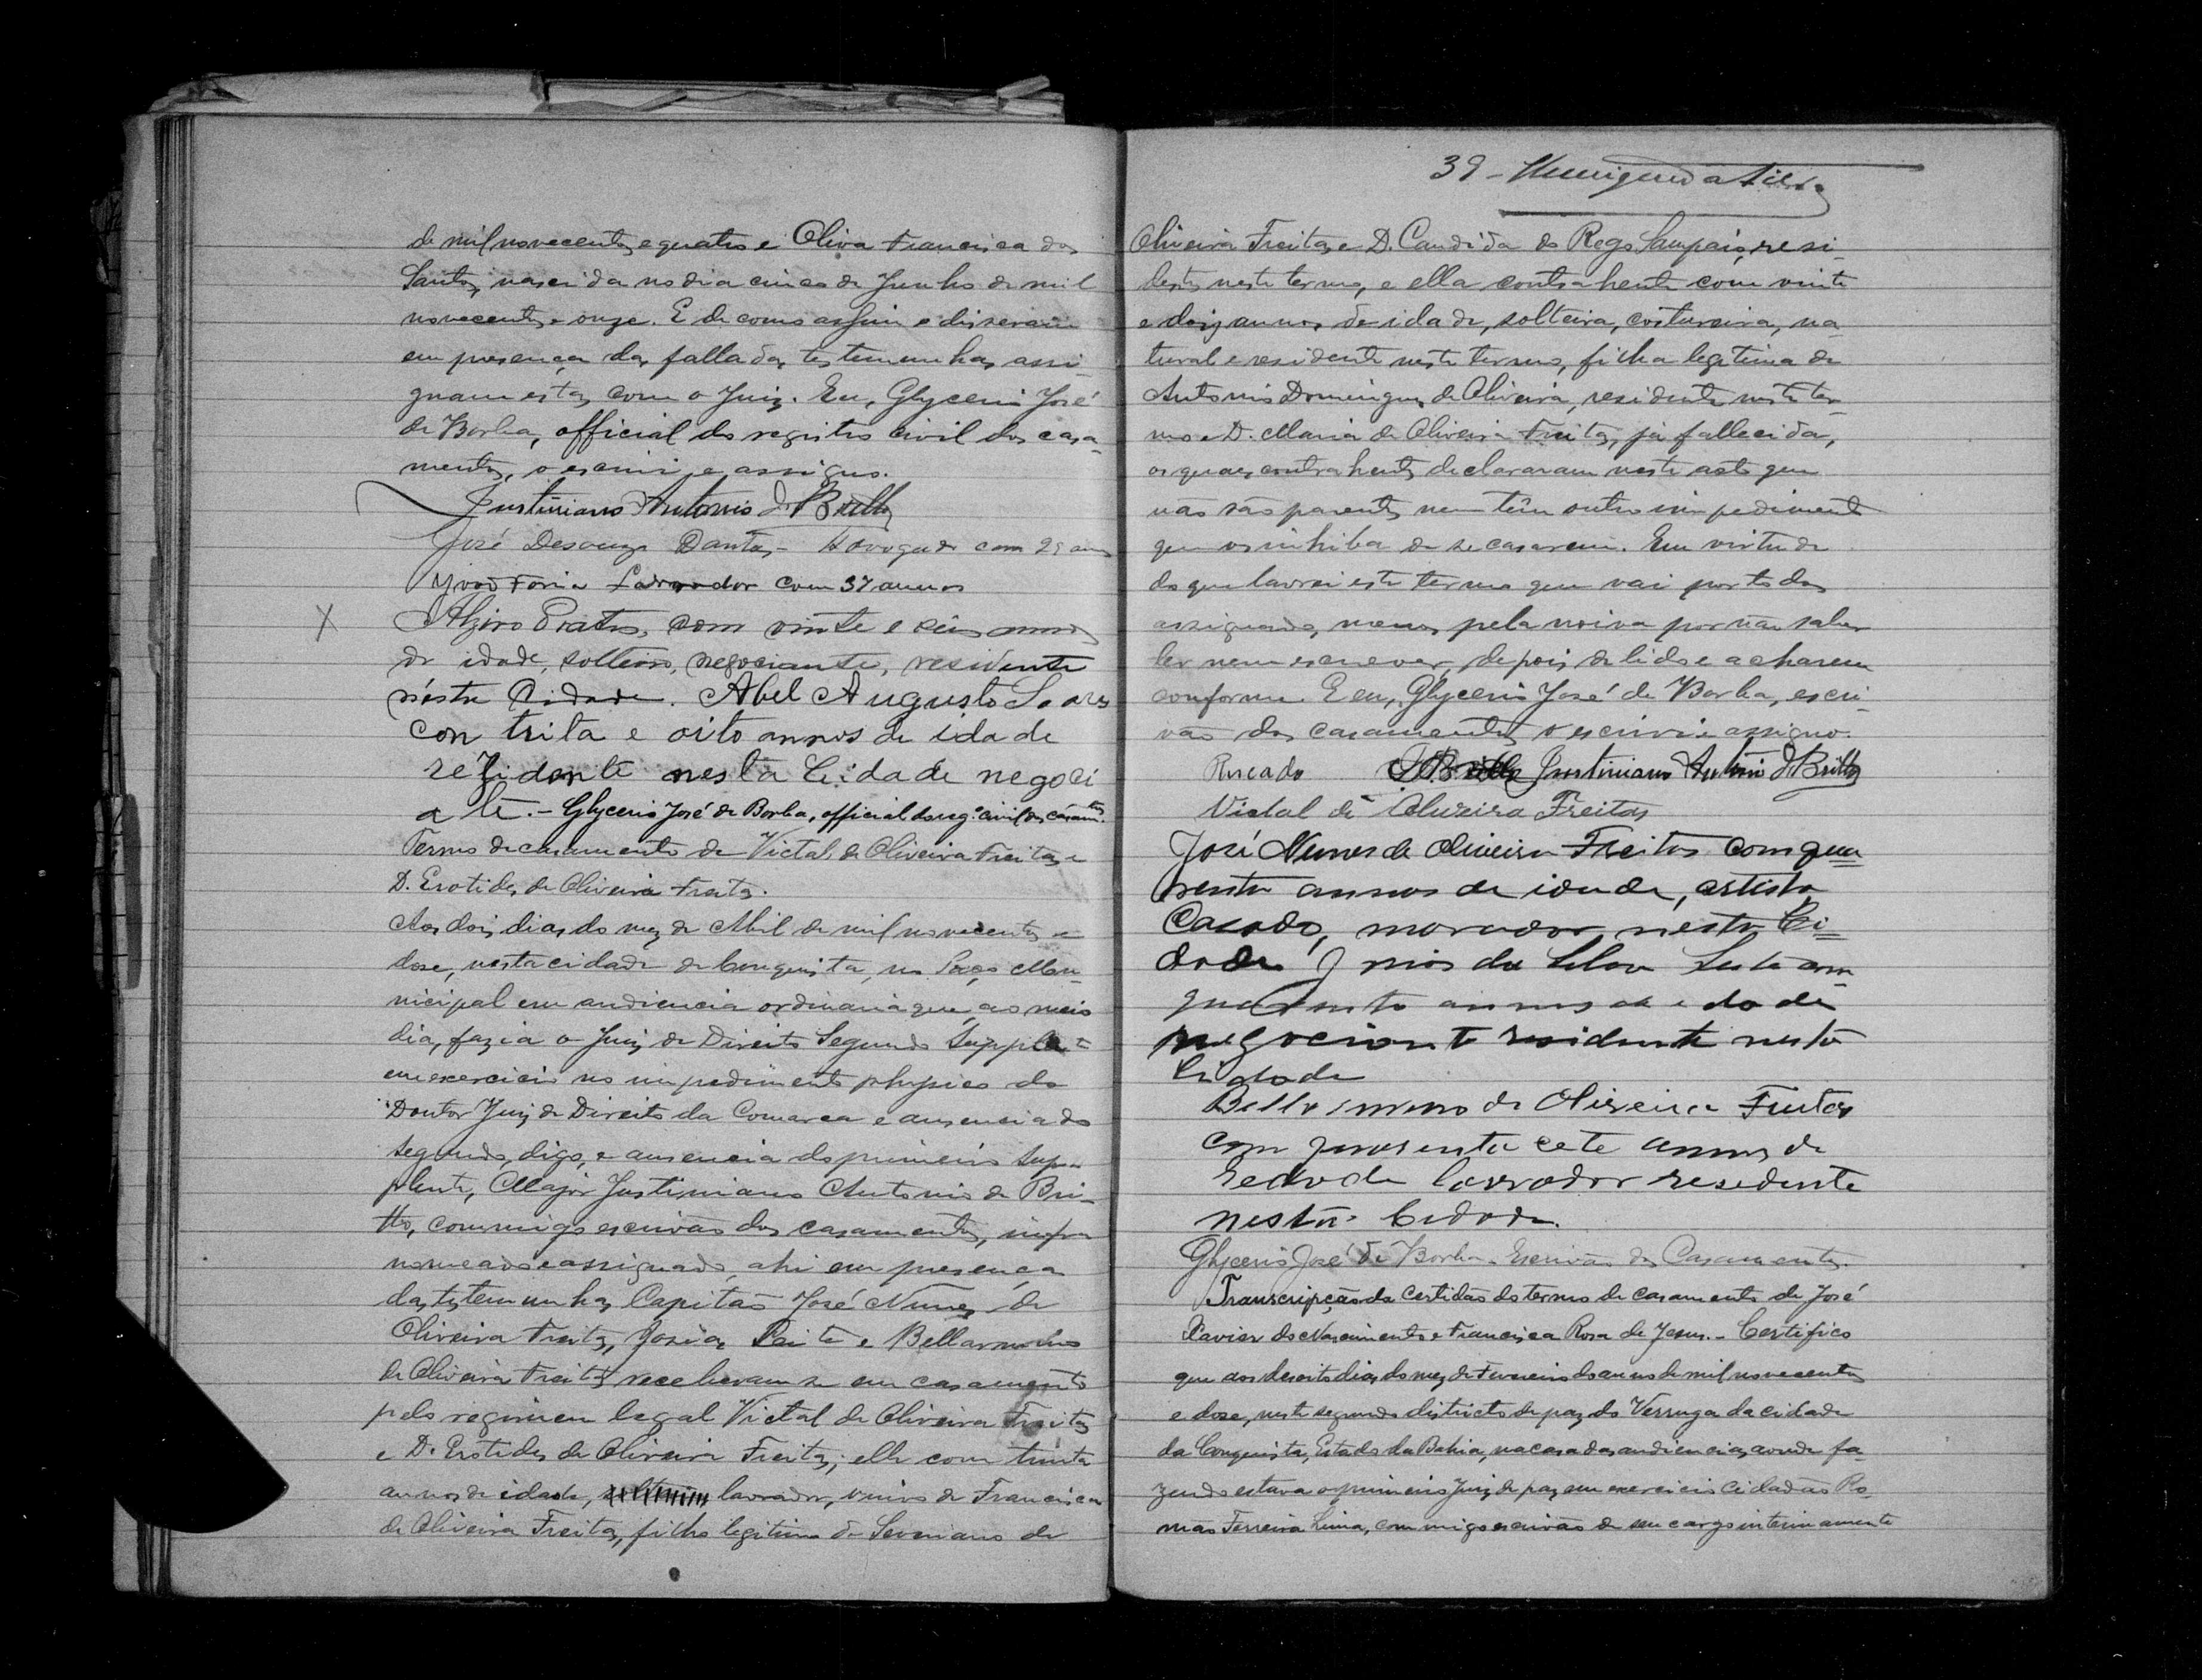 de mil novecentos e quatro e Oliva Francisca dos
Santos, nascida no dia cinco de Junho de mil
novecentos e onze. E de como assim o disseram
em presença das falladas testemunhas assi-
gnam estas com o Juiz. Eu, Glycerio José
de Borba, official do registro civil dos casa-
mentos, o escrevi e assigno.
Justiniano Antonio de Britto
José Desouza Dantas - Advogado com 29 annos
João Faria Lavrador com 37 annos
X Alziro Prates, com vinte e seis annos
de idade, solteiro, negociante, residente
nésta Cidade. Abel Augusto Soares
con trita e oito annos de idade
rezidente nesta Cidade negoci
a te. - Glycerio José de Borba, official do reg.º civil dos casam.tos
Termo de casamento de Victal de Oliveira Freitas e
D. Erotides de Oliveira Freitas.
Aos dois dias do mez de Abril de mil novecentos e
dose, nesta cidade da Conquista, no Paço Mu-
nicipal em audiencia ordinaria que, ao meio
dia, fazia o Juiz de Direito Segundo Supplente
em exercicio no impedimento physico do
Doutor Juiz de Direito da Comarca e ausencia do
segundo, digo, e ausencia do primeiro Sup-
plente, Major Justiniano Antonio de Bri-
tto, commigo escrivão dos casamentos, infra
nomeado e assignado, ahi em presença
das testemunhas Capitão José Nunes de
Oliveira Freitas, Josias Leite e Bellarmino
de Oliveira Freitas receberam-se em casamento
pelo regimen legal Victal de Oliveira Freitas
e D. Erotides de Oliveira Freitas; elle com trinta
annos de idade, lavrador, viuvo de Francisca
de Oliveira Freitas, filho legitimo de Severiano de
39 -
Oliveira Freitas e D. Candida do Rego Sampaio, resi-
dentes neste termo, e ella contrahente com vinte
e dois annos de idade, solteira, costureira, na-
tural e residente neste termo, filha legitima de
Antonio Domingues de Oliveira, residente neste ter-
mo e D. Maria de Oliveira Freitas, já fallecida,
os quaes contrahentes declararam neste acto que
não são parentes nem têm outro impedimento
que os inhiba de se casarem. Em virtude
do que lavrei este termo que vai por todos
assignado, menos pela noiva por não saber
ler nem escrever, depois de lido e acharem
conforme. E eu, Glycerio José de Borba, escri-
vão dos casamentos o escrevi e assigno.
Riscado Justiniano Antonio de Britto
Victal de Oliveira Freitas
José Nunes de Oliveira Freitas com qua
renta annos de idade, artista
Casado, morador nesta Ci=
dade Josias da Silva Leite com
quarenta annos de edade
negociante residente nesta
Cidade
Bellarmino de Oliveira Freitas
com quarenta cete annos de
edade lavrador resedente
nesta Cidade.
Glycerio José de Borba. Escrivão dos Casamentos.
Transcripção da Certidão do termo de casamento de José
Xavier do Nascimento e Francisca Rosa de Jesus. - Certifico
que aos desoito dias do mez de Fevereiro do anno de mil novecentos
e dose, neste segundo districto de paz do Verruga da cidade
da Conquista, Estado da Bahia, na casa das audiencias, aonde fa-
zendo estava o primeiro Juiz de paz em exercicio Cidadão Ro-
mão Ferreira Lima, commigo escrivão de seu cargo interinamente